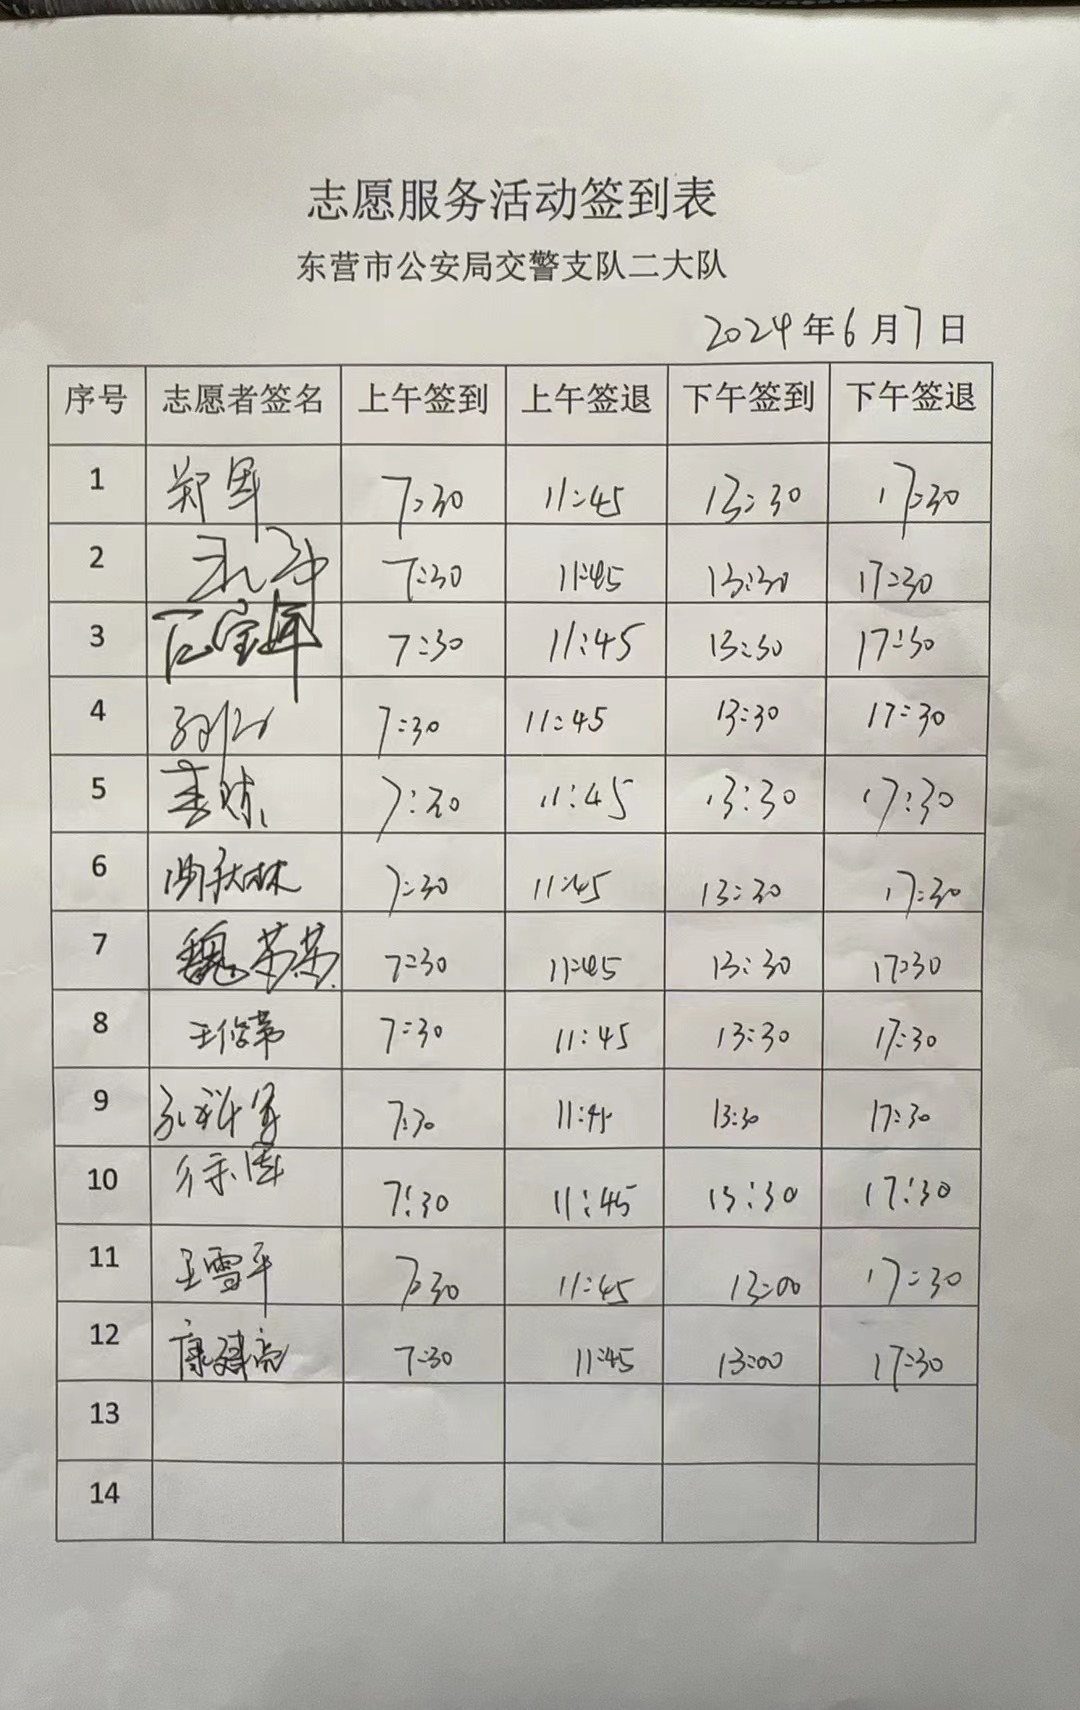 志愿服务活动签到表
东营市公安局交警支队二大队
2024年6月7日
序号 志愿者签名 上午签到 上午签退 下午签到 下午签退
1 郑军 7:30 11:45 13:30 17:30
2 7:30 11:45 13:30 17:30
3 7:30 11:45 13:30 17:30
4 7:30 11:45 13:30 17:30
5 7:30 11:45 13:30 17:30
6 7:30 11:45 13:30 17:30
7 魏 7:30 11:45 13:30 17:30
8 7:30 11:45 13:30 17:30
9 7:30 11:45 13:30 17:30
10 7:30 11:45 13:30 17:30
11 王雪平 7:30 11:45 13:00 17:30
12 康建亮 7:30 11:45 13:00 17:30
13
14